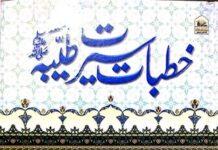 خطبات سیرت طیبہ ﷺ